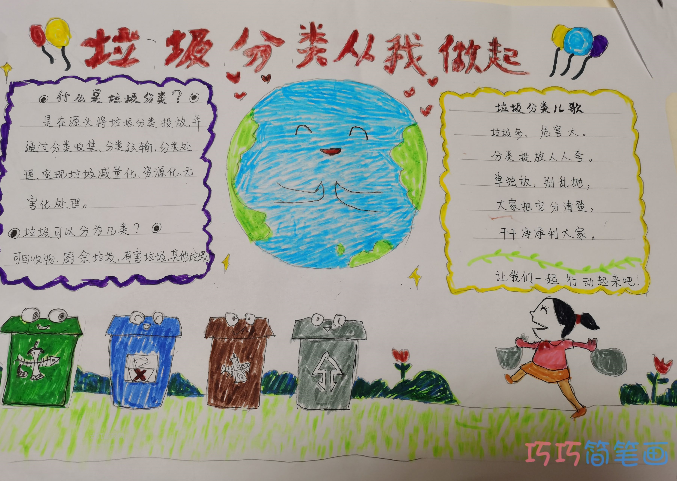 垃圾分类从我做起
什么是垃圾分类?
是在源头将垃圾分类投放,并
通过分类收集、分类运输、分类处
理,实现垃圾减量化、资源化、无
害化处理。
垃圾可以分为几类?
可回收物、厨余垃圾、有害垃圾、其他垃圾
垃圾分类儿歌
垃圾多,危害大。
分类投放人人夸。
单独放,别乱抛,
大家把它分清楚,
干干净净利大家。
让我们一起行动起来吧!
巧巧简笔画